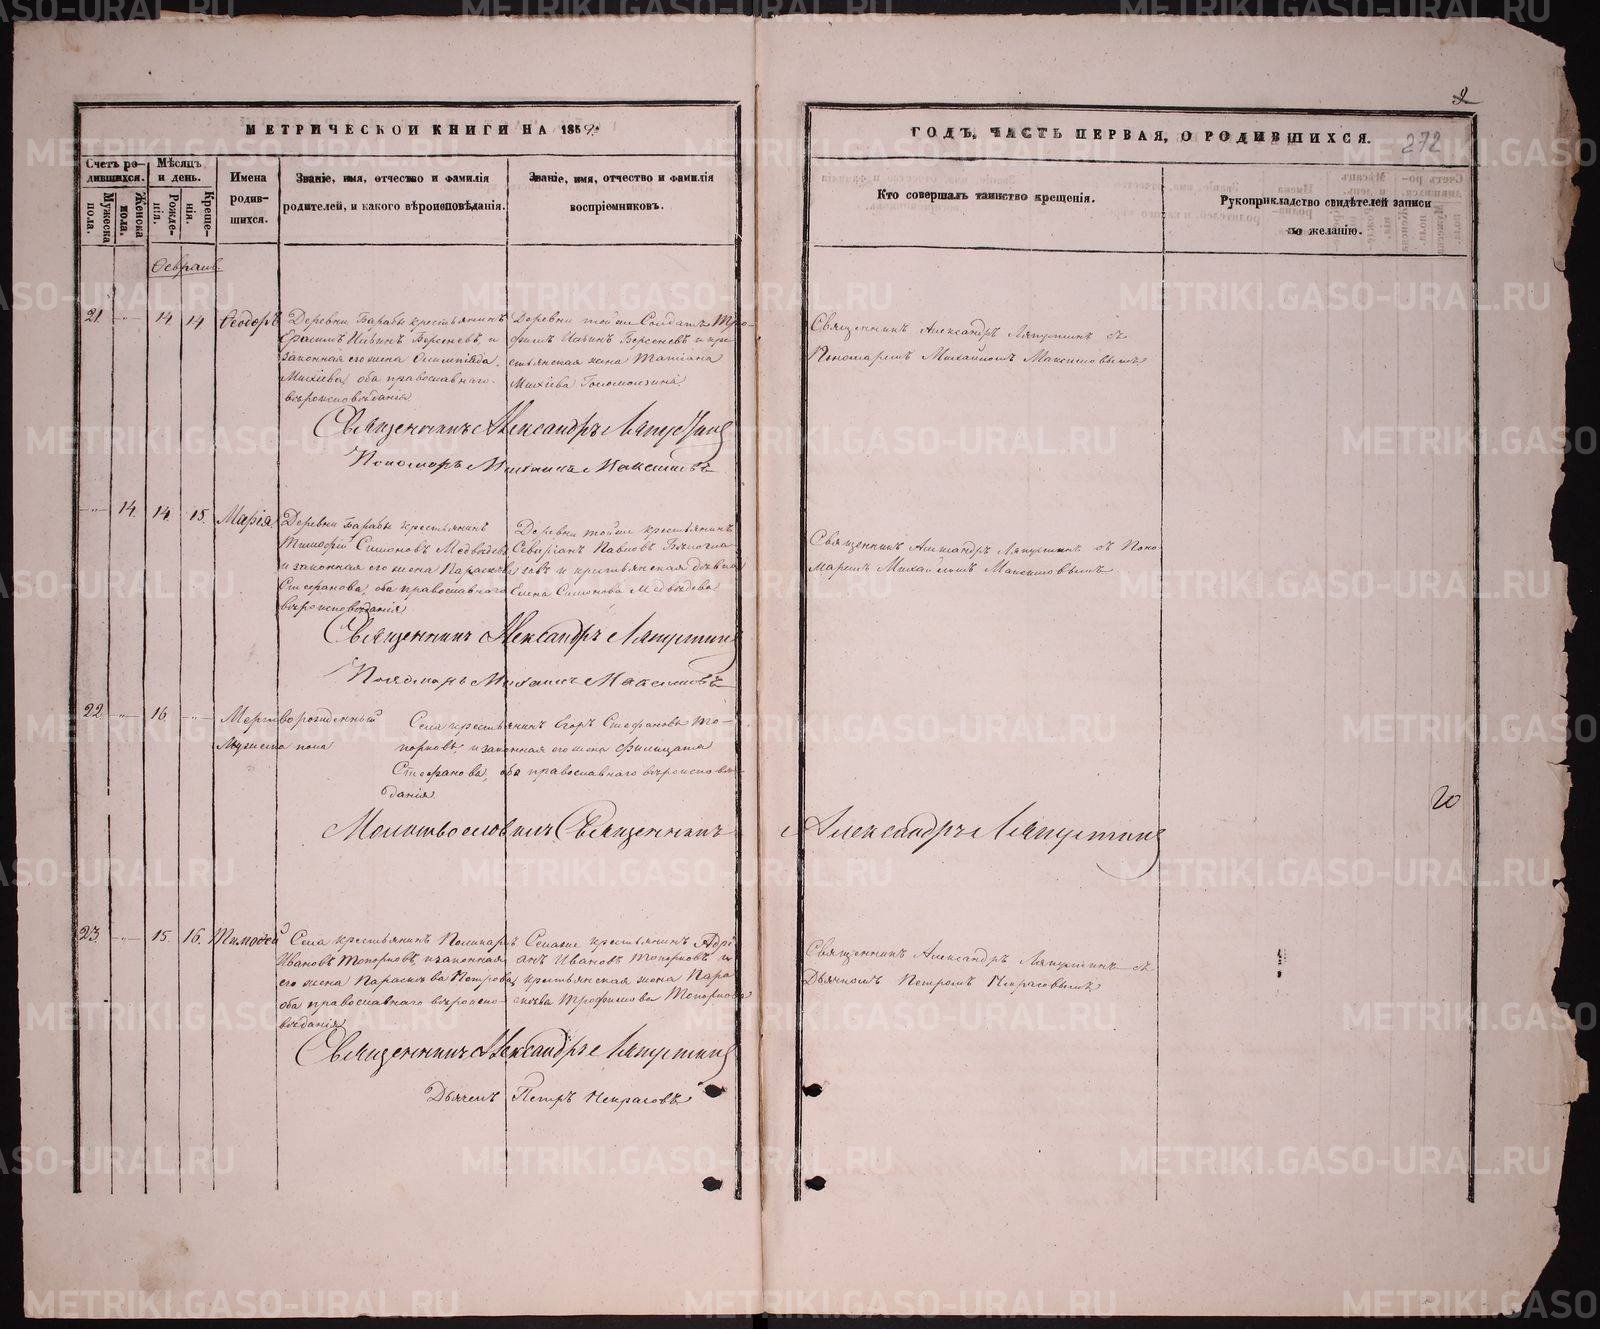 МЕТРИЧЕСКОЙ КНИГИ НА 1859.
ГОДЪ, ЧАСТЬ ПЕРВАЯ, О РОДИВШИХСЯ.
272
Счетъ ро-
дившихся.
Мужеска
пола.
Женска
пола.
Мѣсяцъ
и день.
Рожде-
нія.
Креще-
нія.
Имена
родив-
шихся.
Званіе, имя, отчество и фамилія
родителей, и какого вѣроисповѣданія.
Званіе, имя, отчество и фамилія
воспріемниковъ.
Кто совершалъ таинство крещенія.
Рукоприкладство свидѣтелей записи
по желанію.
Февраль
21 14 14 Ѳеодоръ
Деревни Барабы крестьянинъ
Ильинъ Берсеневъ, и
законная его жена Олимпіада
оба православнаго
вѣроисповѣданія
Деревни тойже Солдатъ Тро-
фимъ Ильинъ Берсеневъ и кре-
стьянская жена Татіана
Священникъ Александръ Ляпустинъ съ
Пономаремъ Михайломъ Максимовымъ
Священникъ Александръ Ляпустинъ
Пономарь Михаилъ Максимовъ
14 14 15 Марія
Деревни Барабы крестьянинъ
Тимофій Симоновъ Медвѣдевъ
и законная его жена Параскѣва
Стефанова, оба православнаго
вѣроисповѣданія
Деревни тойже крестьянинъ
Северіанъ Павловъ Бѣлогла-
зовъ и крестьянская дѣвица
Елена Симонова Медвѣдева
Священникъ Александръ Ляпустинъ съ Поно-
маремъ Михайломъ Максимовымъ
Священникъ Александръ Ляпустинъ
Пономарь Михаилъ Максимовъ
22 16 Мертворожденный
Мужеска пола
Села крестьянинъ Егоръ Стефановъ То-
порковъ, и законная его жена Филицата
Стефанова, оба православнаго вѣроисповѣ-
данія
Молитвословилъ Священникъ Александръ Ляпустинъ
20
23 15 16 Тимоѳей
Села крестьянинъ Поликарпъ
Ивановъ Топорковъ, и законная
его жена Параскѣва Петрова,
оба православнаго вѣроиспо-
вѣданія
Села же крестьянинъ Адрі-
анъ Ивановъ Топорковъ и
крестьянская жена Пара-
скѣва Трофимова Топоркова
Священникъ Александръ Ляпустинъ съ
Дьячкомъ Петромъ Некрасовымъ
Священникъ Александръ Ляпустинъ
Дьячекъ Петръ Некрасовъ
METRIKI.GASO-URAL.RU